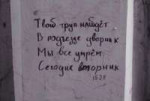 Твой труп найдёт
В подъезде дворник
Мы все умрём
Сегодня вторник